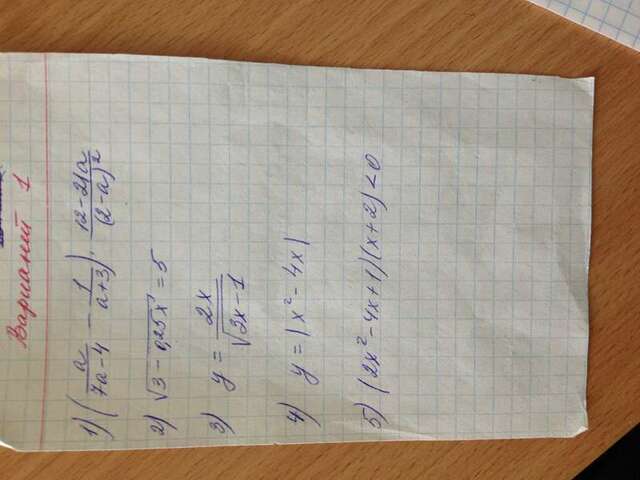 Вариант 1
1) (a/(7a-4) - 1/(a+3)) · (12-21a)/(2-a)²
2) √(3-0,25x) = 5
3) y = 2x/√(3x-1)
4) y = |x²-4x|
5) (2x²-4x+1)(x+2)<0